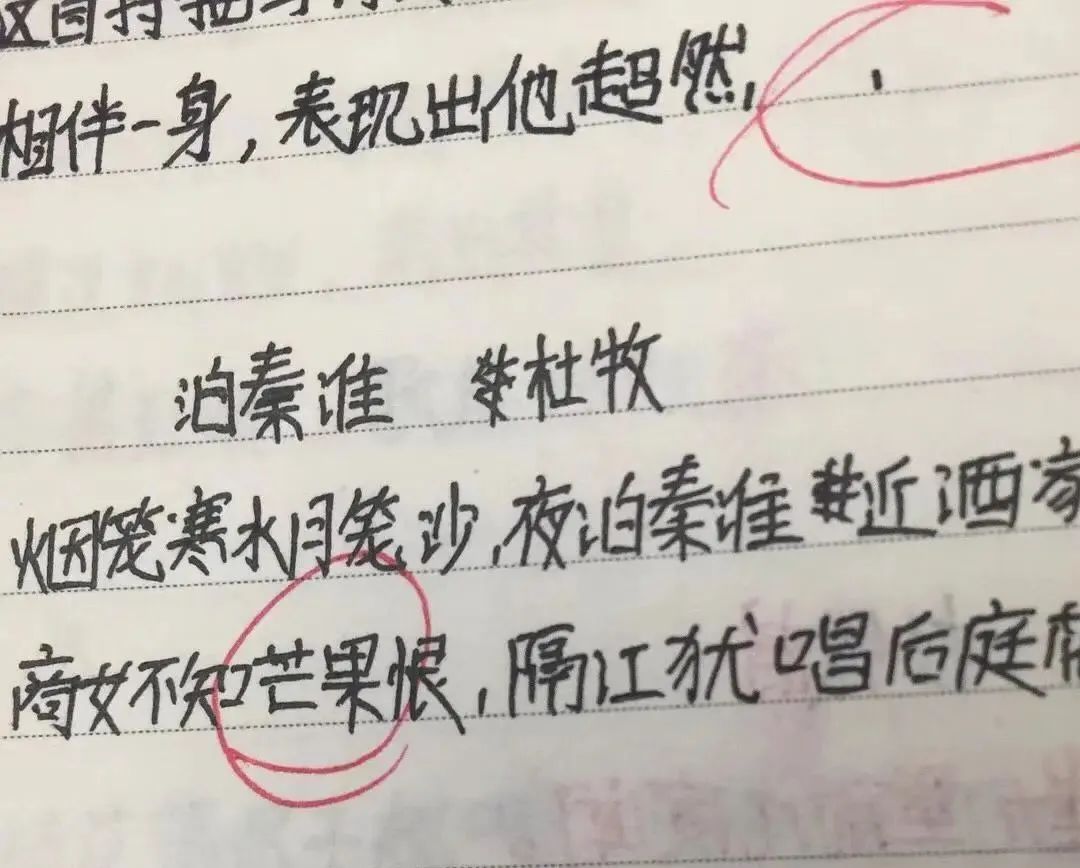 相伴一身,表现出他超然,
泊秦淮 杜牧
烟笼寒水月笼沙,夜泊秦淮近酒家
商女不知芒果恨,隔江犹唱后庭